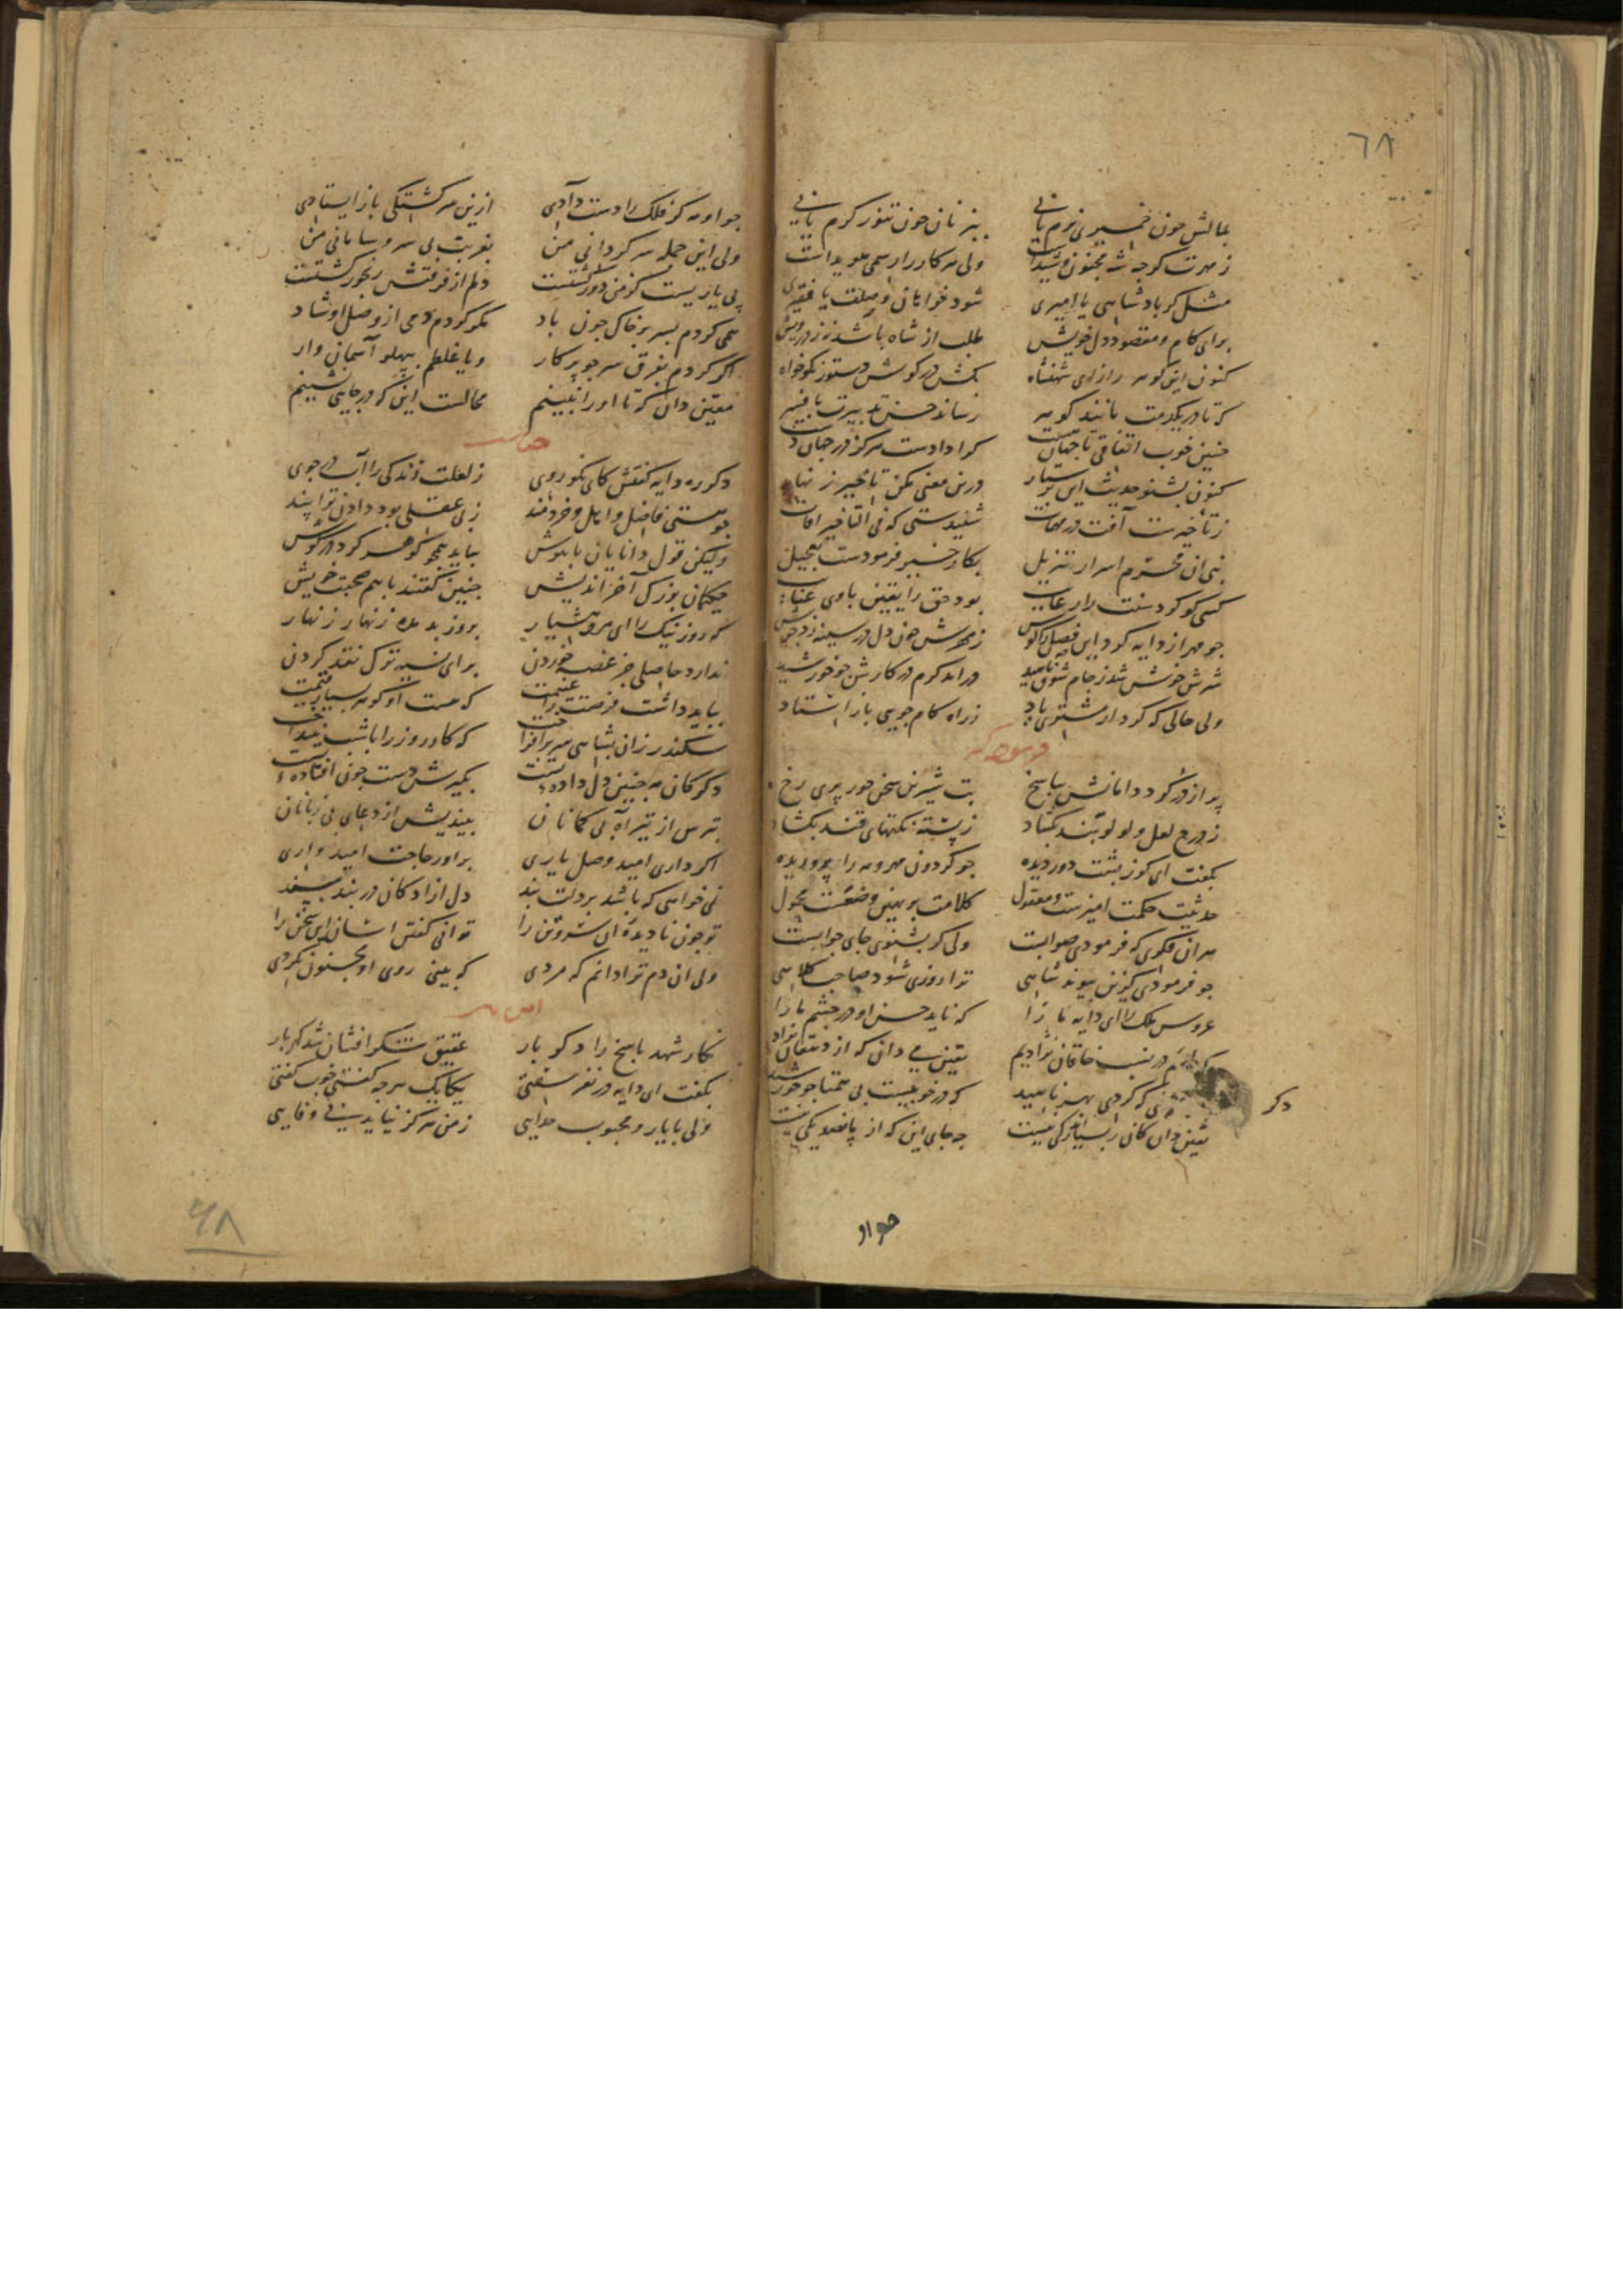 ٦٨
بمالش چون خمیری نرم یابی بنه نان چون تنور گرم یابی
ز مهرت گرچه شه مجنون و شیداست ولی هر کار را رسمی هویداست
مثل گر پادشاهی یا امیری شود خواهان وصلت با فقیری
برای کام و مقصود دل خویش طلب از شاه باشد نز درویش
کنون این گوهر راز ای شهنشاه بکش در گوش دستور نکوخواه
که تا در یکدمت مانند گوهر رساند حسن تدبیرت بافسر
چنین خوب اتفاقی تا جهانست کرا دادست هرگز در جهان دست
کنون بشنو حدیث این درین معنی مکن تاخیر زنهار
ز تاخیرست آفت در مهمات شنیدستی که فی التاخیر آفات
نبی آن محترم اسرار تنزیل بکار خیر فرمودست تعجیل
کسی کو کرد سنت را رعایت بود حق را یقین باوی عنایت
چو مهر از دایه کرد این قصه را گوش ز مهرش خون دل در سینه زد جوش
سرش خوش شد ز جام شوق ناهید در آمد گرم در کارش چو خورشید
ولی حالی که کرد از مشتری یاد ز راه کام جویی باز استاد

پر از در کرد دامانش بپاسخ بت شیرین سخن حور پری رخ
ز درج لعل و لولو بند بگشاد ز پسته نکتهای قند بگشاد
بگفت ای کوز پشت دور دیده چو گردون مهر و مه را پروریده
حدیثت حکمت آمیزست و معقول کلامت بر نهین وضعست محمول
هر آن فکری که فرمودی صوابست ولی گر بشنوی جای جوابست
چو فرمودی کزین پیوند شاهی ترا روزی شود صاحب کلاهی
عروس ملک را ای دایه ما را که ناید حسن او در چشم ما را
در نسب خاقان نژادیم یقین می دان که از دهقان نژاد
که کردی بهر ناهید که در خوبیست بی همتا چو خورشید
یقین دان کان را بسیار کی نیست چه جای این که از پانصد یکی نیست
دکر
جواو

چو او مه کز فلک را دست دادی ازین سرگشتگی باز ایستادی
ولی این جمله سرگردانی من بغربت بی سر و سامانی من
پی یاریست کز من دور گشتست دلم از فرقتش رنجور گشتست
همی گردم بسر بر خاک چون باد مگر گردم دمی از وصل او شاد
اگر گردم بفرق سر چو پرگار و یا غلطم بپهلو آسمان وار
معین دان که تا او را نبینم محالست این که در جایی نشینم

دگر ره دایه گفتش کای نکو روی ز لعلت زندگی را آب در جوی
چو هستی فاضل و اهل و خردمند ز بی عقلی بود دادن ترا پند
ولیکن قول دانایان با هوش بباید همچو گوهر کرد در گوش
حکیمان بزرگ آخر اندیش چنین گفتند باهم صحبت خویش
که روز نیک را ای مرد هشیار بروز بد مده زنهار زنهار
ندارد حاصلی جز غصه خوردن برای نسیه ترک نقد کردن
بباید داشت فرصت را غنیمت که هست او گوهر بسیار قیمت
سکندر زان بشاهی سر برافراخت که کار روز را با شب نینداخت
دگر کان مه چنین دل داده تست بگیرش دست چون افتاده تست
بترس از تیر آه بی کمانان بیندیش از دعای بی زبانان
اگر داری امید وصل یاری برآور حاجت امیدواری
نمی خواهی که باشد بر دلت بند دل آزادگان در بند مپسند
تو چون نادیده آن سروتن را توانی گفتن آسان این سخن را
ولی آن دم ترا دانم که مردی که بینی روی او مجنون نگردی

نگار شهد پاسخ را دگر بار عقیق شکر افشان شد گهربار
بگفت ای دایه در نغز سفتی یکایک هرچه گفتی خوب گفتی
ولی با یار و محبوب خدایی ز من هرگز نیاید بیوفایی
۶۸